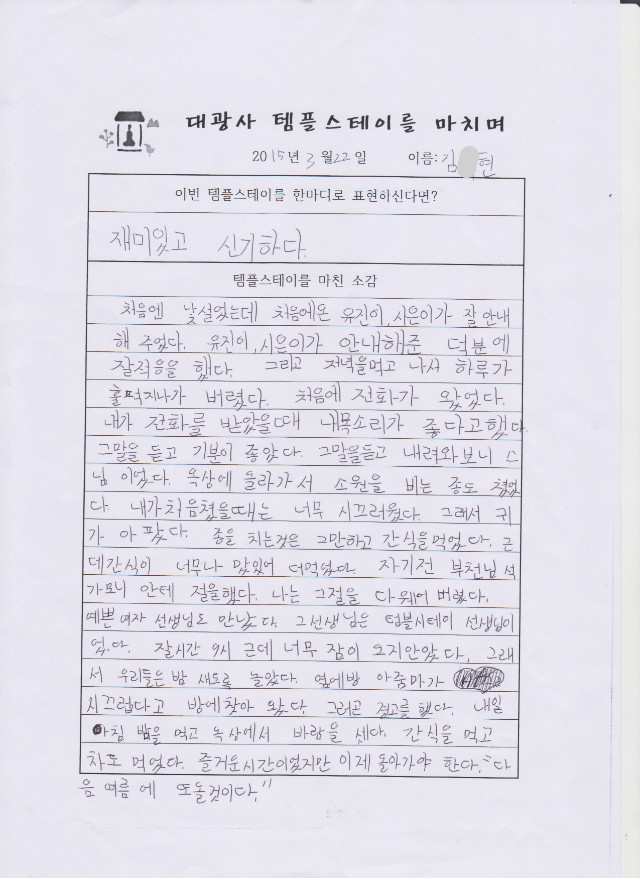 대광사 템플스테이를 마치며
2015년 3월 22일 이름: 김 현
이번 템플스테이를 한마디로 표현하신다면?
재미있고 신기하다.
템플스테이를 마친 소감
처음엔 낯설었는데 처음에온 유진이, 시은이가 잘 안내
해 주었다. 유진이, 시은이가 안내해준 덕분에
잘적응을 했다. 그리고 저녁을먹고 나서 하루가
훌떡지나가 버렸다. 처음에 전화가 왔었다.
내가 전화를 받았을때 내목소리가 좋다고했다.
그말을 듣고 기분이 좋았다. 그말을듣고 내려와보니 스
님 이었다. 옥상에 올라가서 소원을 비는 종도 쳤었
다. 내가처음쳤을때는 너무 시끄러웠다. 그래서 귀
가 아팠다. 종을 치는것은 그만하고 간식을먹었다. 근
데간식이 너무나 맜있어 더먹었다. 자기전 부천님 석
가모니 안테 절을했다. 나는 그절을 다 외워 버렸다.
예쁜 여자 선생님도 만났다. 그선생님은 텀블시테이 선생님이
었다. 잘시간 9시 근데 너무 잠이 오지안았다. 그래
서 우리들은 밤 새도록 놀았다. 옆에방 아줌마가
시끄럽다고 방에찾아 왔다. 그러곤 경고를 했다. 내일
아침 밥을 먹고 옥상에서 바람을 쎄다. 간식을 먹고
차도 먹었다. 즐거운시간이었지만 이제 돌아가야 한다. "다
음 여름 에 또올것이다."